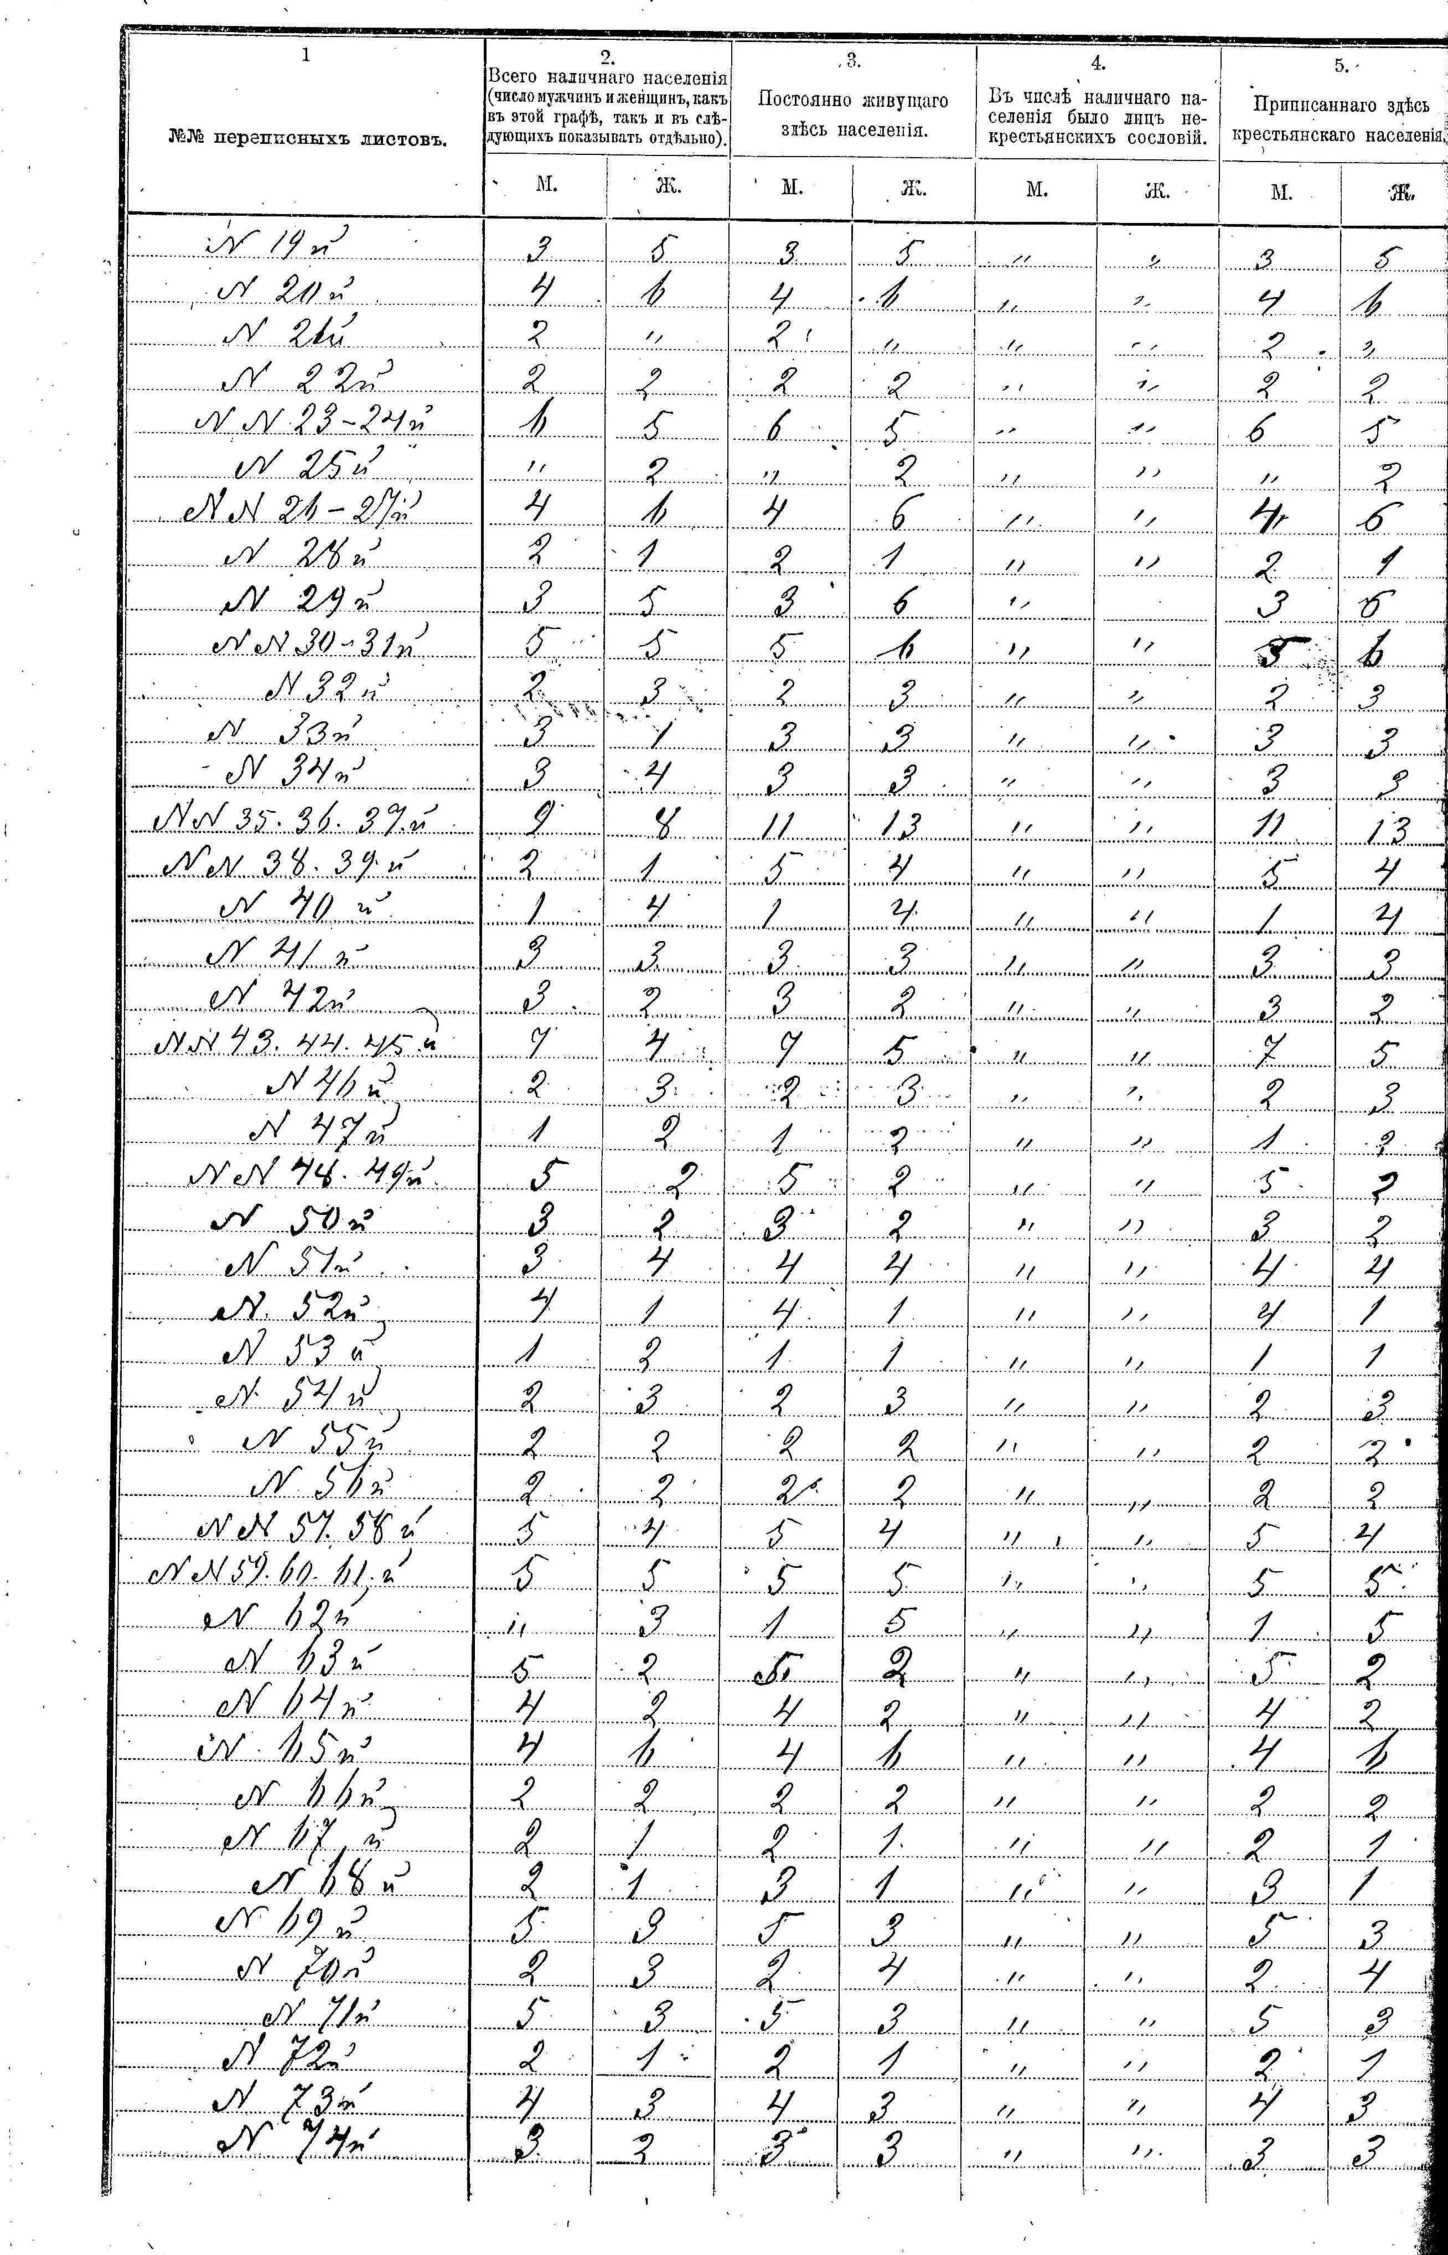 1 2. 3. 4. 5.
№№ переписныхъ листовъ.
Всего наличнаго населенія
(число мужчинъ и женщинъ, какъ
въ этой графѣ, такъ и въ слѣ-
дующихъ показывать отдѣльно).
Постоянно живущаго
здѣсь населенія.
Въ числѣ наличнаго на-
селенія было лицъ не-
крестьянскихъ сословій.
Приписаннаго здѣсь
крестьянскаго населенія.
М. Ж. М. Ж. М. Ж. М. Ж.
N 19й 3 5 3 5 " " 3 5
N 20й 4 6 4 6 " " 4 6
N 21й 2 " 2 " " " 2 "
N 22й 2 2 2 2 " " 2 2
NN 23-24й 6 5 6 5 " " 6 5
N 25й " 2 " 2 " " " 2
NN 26-27й 4 6 4 6 " " 4 6
N 28й 2 1 2 1 " " 2 1
N 29й 3 5 3 6 " 3 6
NN 30-31й 5 5 5 6 " " 5 6
N 32й 2 3 2 3 " " 2 3
N 33й 3 1 3 3 " " 3 3
N 34й 3 4 3 3 " " 3 3
NN 35. 36. 37.й 9 8 11 13 " " 11 13
NN 38. 39.й 2 1 5 4 " " 5 4
N 40й 1 4 1 4 " " 1 4
N 41й 3 3 3 3 " " 3 3
N 42й 3 2 3 2 " " 3 2
NN 43. 44. 45.й 7 4 7 5 " " 7 5
N 46й 2 3 2 3 " " 2 3
N 47й 1 2 1 2 " " 1 2
NN 48. 49й 5 2 5 2 " " 5 2
N 50й 3 2 3 2 " " 3 2
N 51й 3 4 4 4 " " 4 4
N. 52й 4 1 4 1 " " 4 1
N 53й 1 2 1 1 " " 1 1
N. 54й 2 3 2 3 " " 2 3
N 55й 2 2 2 2 " " 2 2
N. 56й 2 2 2 2 " " 2 2
NN 57. 58й 5 4 5 4 " " 5 4
NN 59. 60. 61.й 5 5 5 5 " " 5 5
N 62й " 3 1 5 " " 1 5
N 63й 5 2 5 2 " " 5 2
N 64й 4 2 4 2 " " 4 2
N. 65й 4 6 4 6 " " 4 6
N 66й 2 2 2 2 " " 2 2
N 67й 2 1 2 1 " " 2 1
N 68й 2 1 3 1 " " 3 1
N 69й 5 3 5 3 " " 5 3
N 70й 2 3 2 4 " " 2 4
N 71й 5 3 5 3 " " 5 3
N 72й 2 1 2 1 " " 2 1
N 73й 4 3 4 3 " " 4 3
N 74й 3 2 3 3 " " 3 3